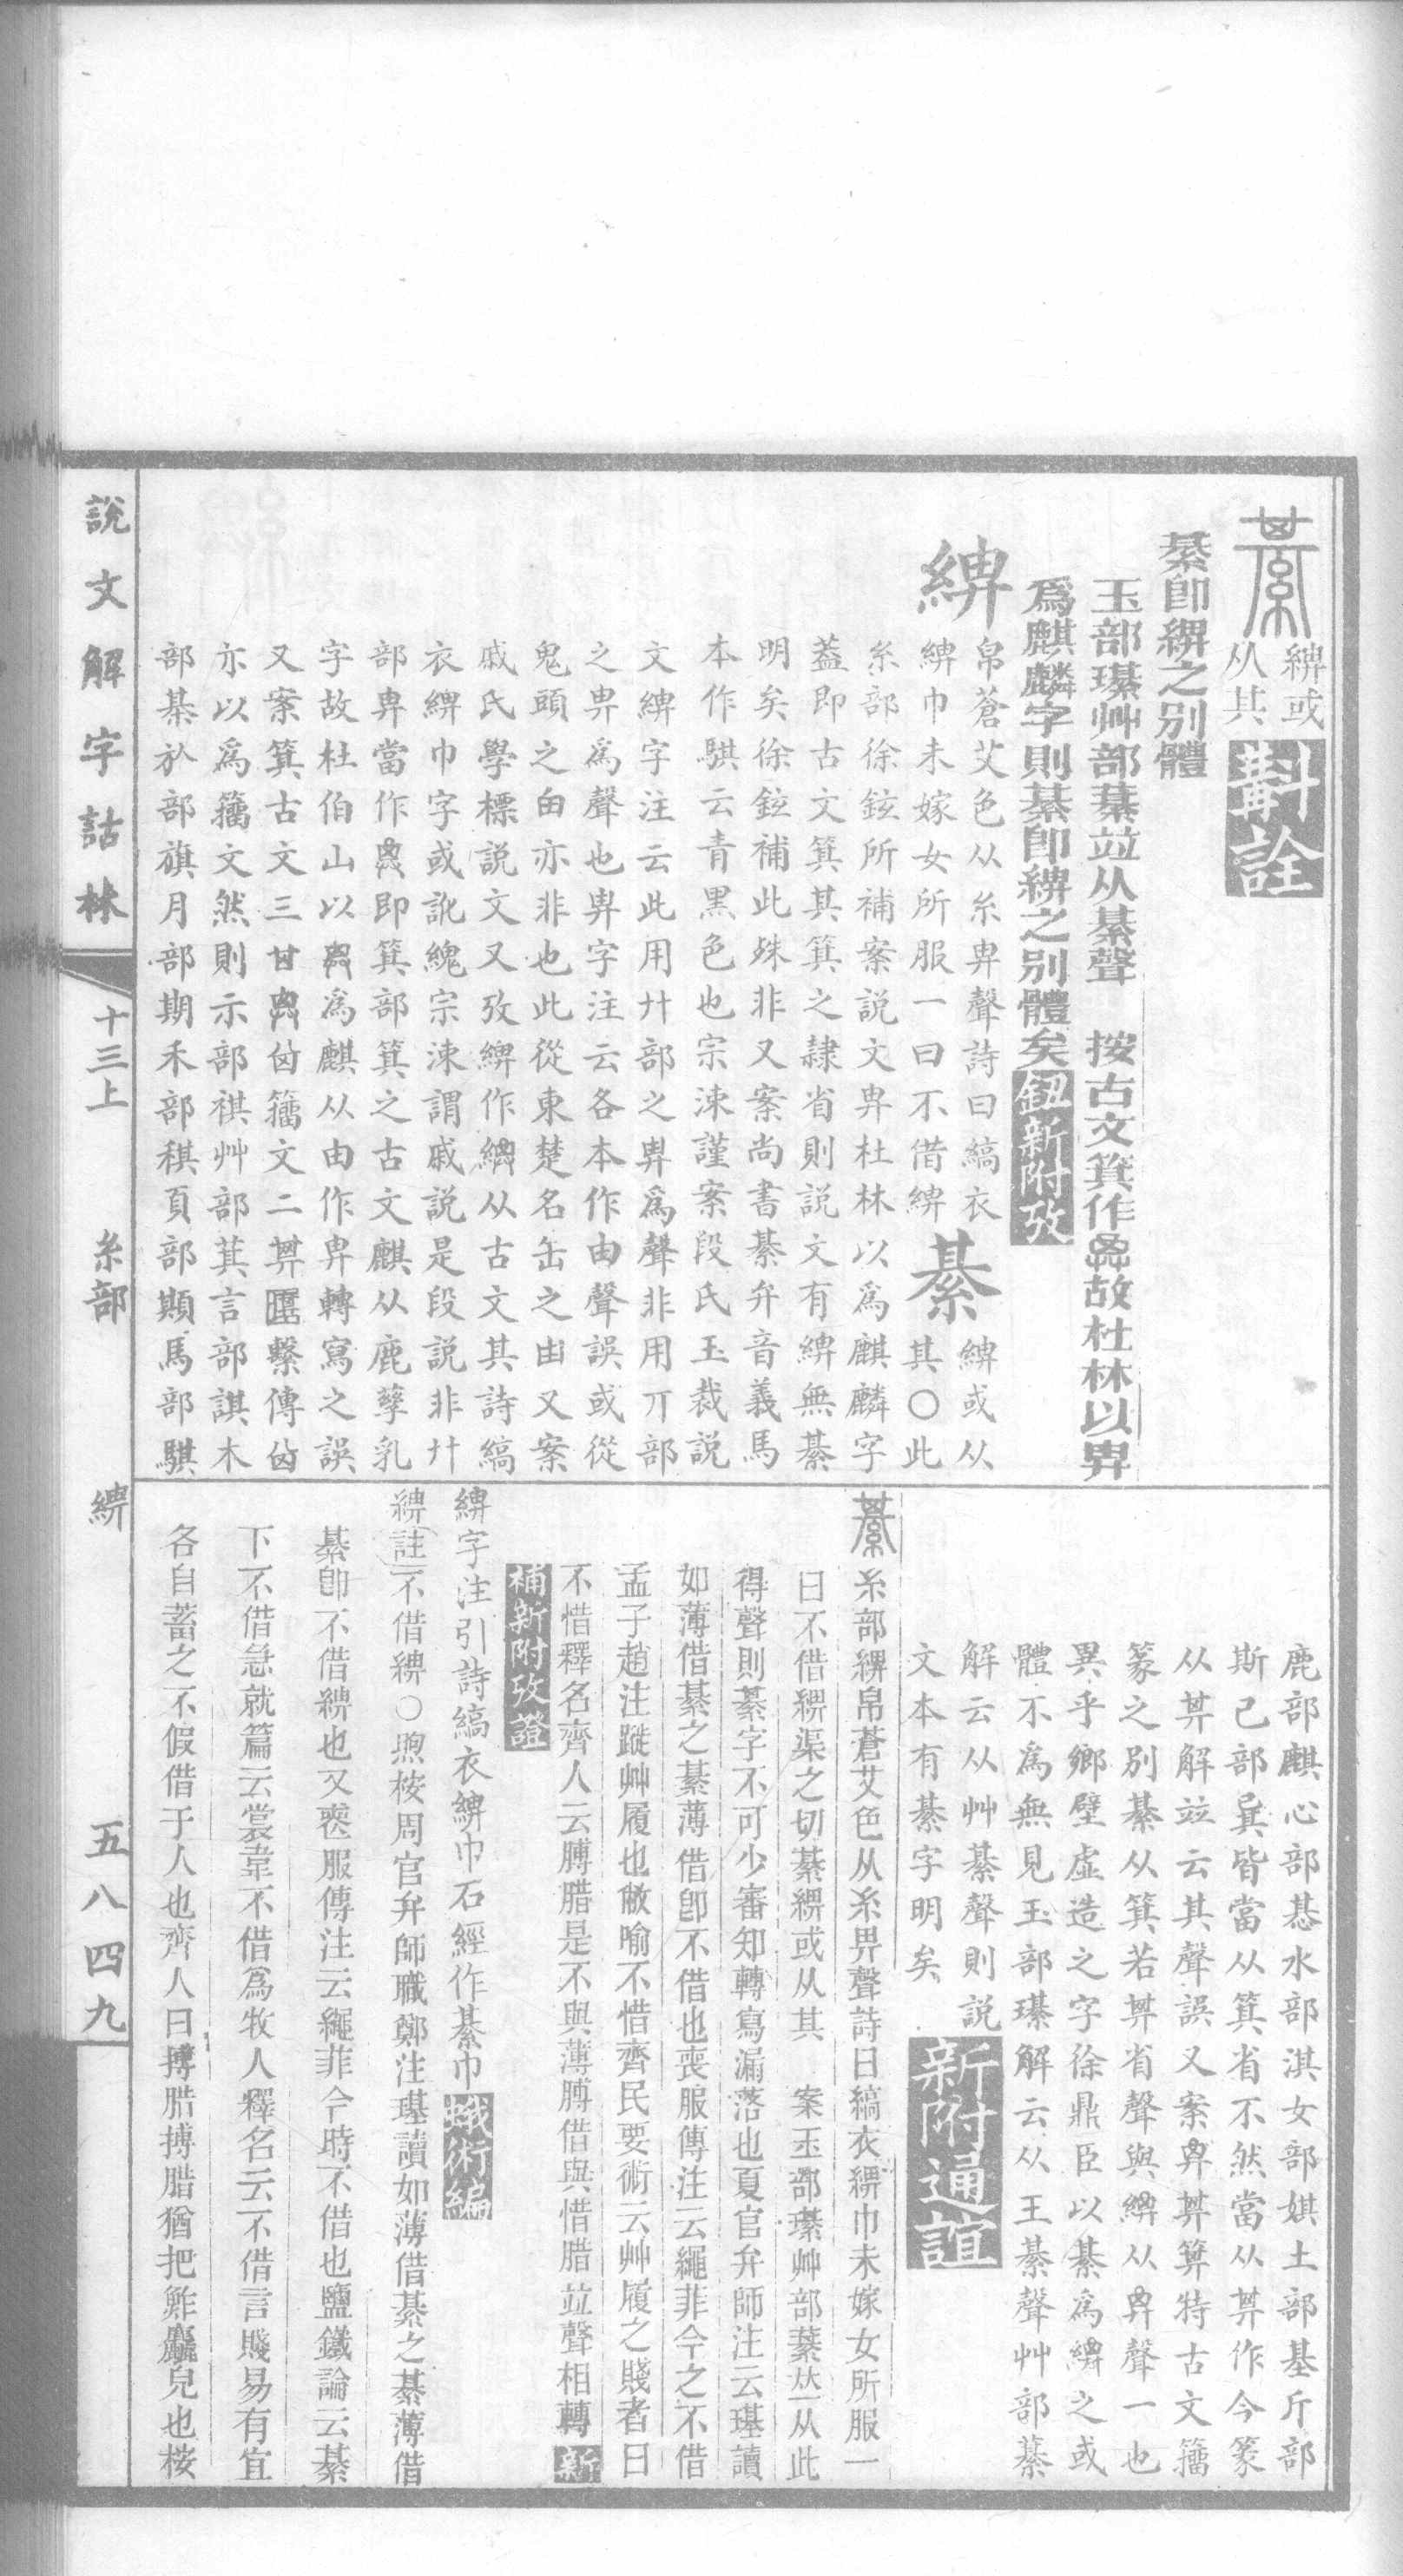 綦
綥或
从其
斠詮
綦卽綥之別體
玉部璂艸部藄竝从綦聲 按古文箕作𠔛故杜林以畀
爲麒麟字則綦卽綥之別體矣 鈕新附攷
綥
帛蒼艾色从糸畀聲詩曰縞衣
綥巾未嫁女所服一曰不借綥
綦
綥或从
其○此
糸部徐鉉所補案説文畀杜林以爲麒麟字
葢即古文箕其箕之隷省則説文有綥無綦
明矣徐鉉補此殊非又案尚書綦弁音義馬
本作騏云青黑色也宗涑謹案段氏玉裁説
文綥字注云此用廾部之畀爲聲非用丌部
之畀爲聲也畀字注云各本作由聲誤或從
鬼頭之甶亦非也此從東楚名缶之甾又案
戚氏學標説文又攷綥作綥从古文其詩縞
衣綥巾字或訛緦宗涑謂戚説是段説非廾
部畀當作𠔛即箕部箕之古文麒从鹿孳乳
字故杜伯山以𠔛爲麒从由作畀轉寫之誤
又案箕古文三𠀠𠔛𠔋籒文二𠔝匷繫傳𠔋
亦以爲籒文然則示部祺艸部萁言部諆木
部棊㫃部旗月部期禾部稘頁部䫏馬部騏
鹿部麒心部惎水部淇女部娸土部基斤部
斯己部㠱皆當从箕省不然當从𠔝作今篆
从𠔝解竝云其聲誤又案畀𠔝算特古文籒
篆之別綦从箕若𠔝省聲與綥从畀聲一也
異乎鄉壁虛造之字徐鼎臣以綦爲綥之或
體不爲無見玉部璂解云从王綦聲艸部藄
解云从艸綦聲則説
文本有綦字明矣
新附通誼
綦
糸部綥帛蒼艾色从糸畀聲詩曰縞衣綥巾未嫁女所服一
曰不借綥渠之切綦綥或从其 案玉部璂艸部藄𠀤从此
得聲則綦字不可少審知轉寫漏落也夏官弁師注云璂讀
如薄借綦之綦薄借卽不借也喪服傳注云繩菲今之不借
孟子趙注蹝艸履也敝喻不惜齊民要術云艸履之賤者曰
不惜釋名齊人云膊腊是不與薄膊借與惜腊竝聲相轉 新
補新附攷證
綥字注引詩縞衣綥巾石經作綦巾 蛾術編
綥註不借綥○煦桉周官弁師職鄭注璂讀如薄借綦之綦薄借
綦卽不借綥也又喪服傳注云繩菲今時不借也鹽鐵論云綦
下不借急就篇云裳韋不借爲牧人釋名云不借言賤易有宜
各自蓄之不假借于人也齊人曰搏腊搏腊猶把鮓麤皃也桉
說文解字詁林
十三上 糸部 綥
五八四九